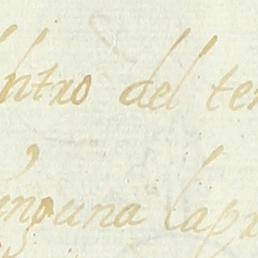 ntro del ter
inguna lapi